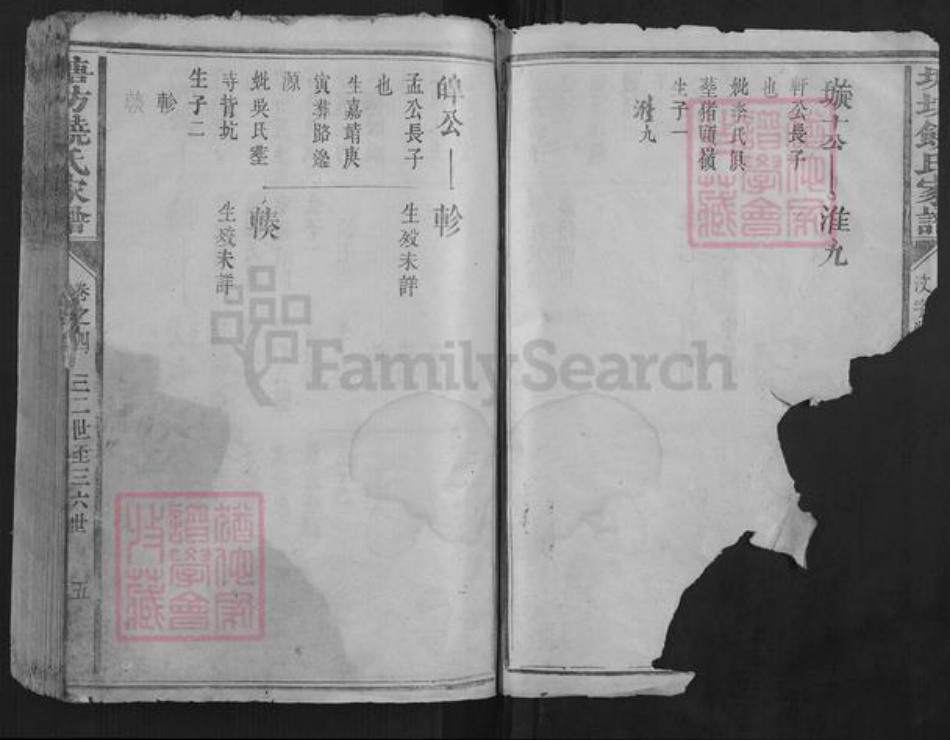 公
淮九
軒公長子
也
妣李氏俱
塟猪頭嶺
生子一
淮九
皥公
軫
孟公長子
也
生嘉靖庚
寅葬路邊
源
妣吳氏塟
寺背坑
生子二
軫
生歿未詳
輳
生歿未詳
塘坊饒氏家譜
卷之四
三二世至三六世
五
譜學會
收藏
FamilySearch